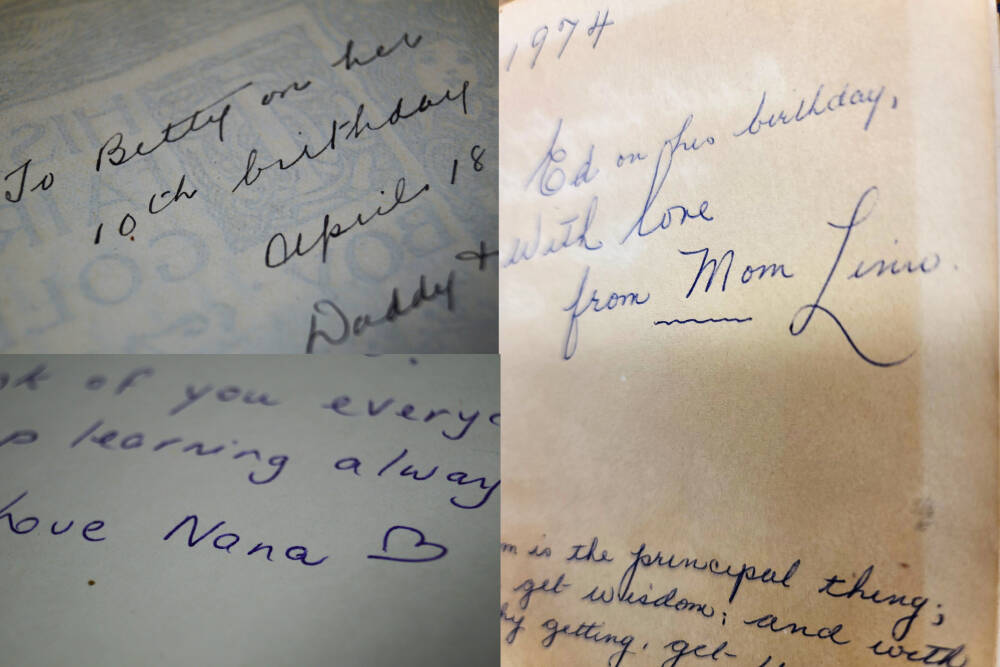 To Betty on her
10th birthday
April 18
Daddy +
of you every
learning alway
Love Nana
1974
Ed on his birthday,
With love
from Mom
is the principal thing;
get wisdom; and with
getting, get